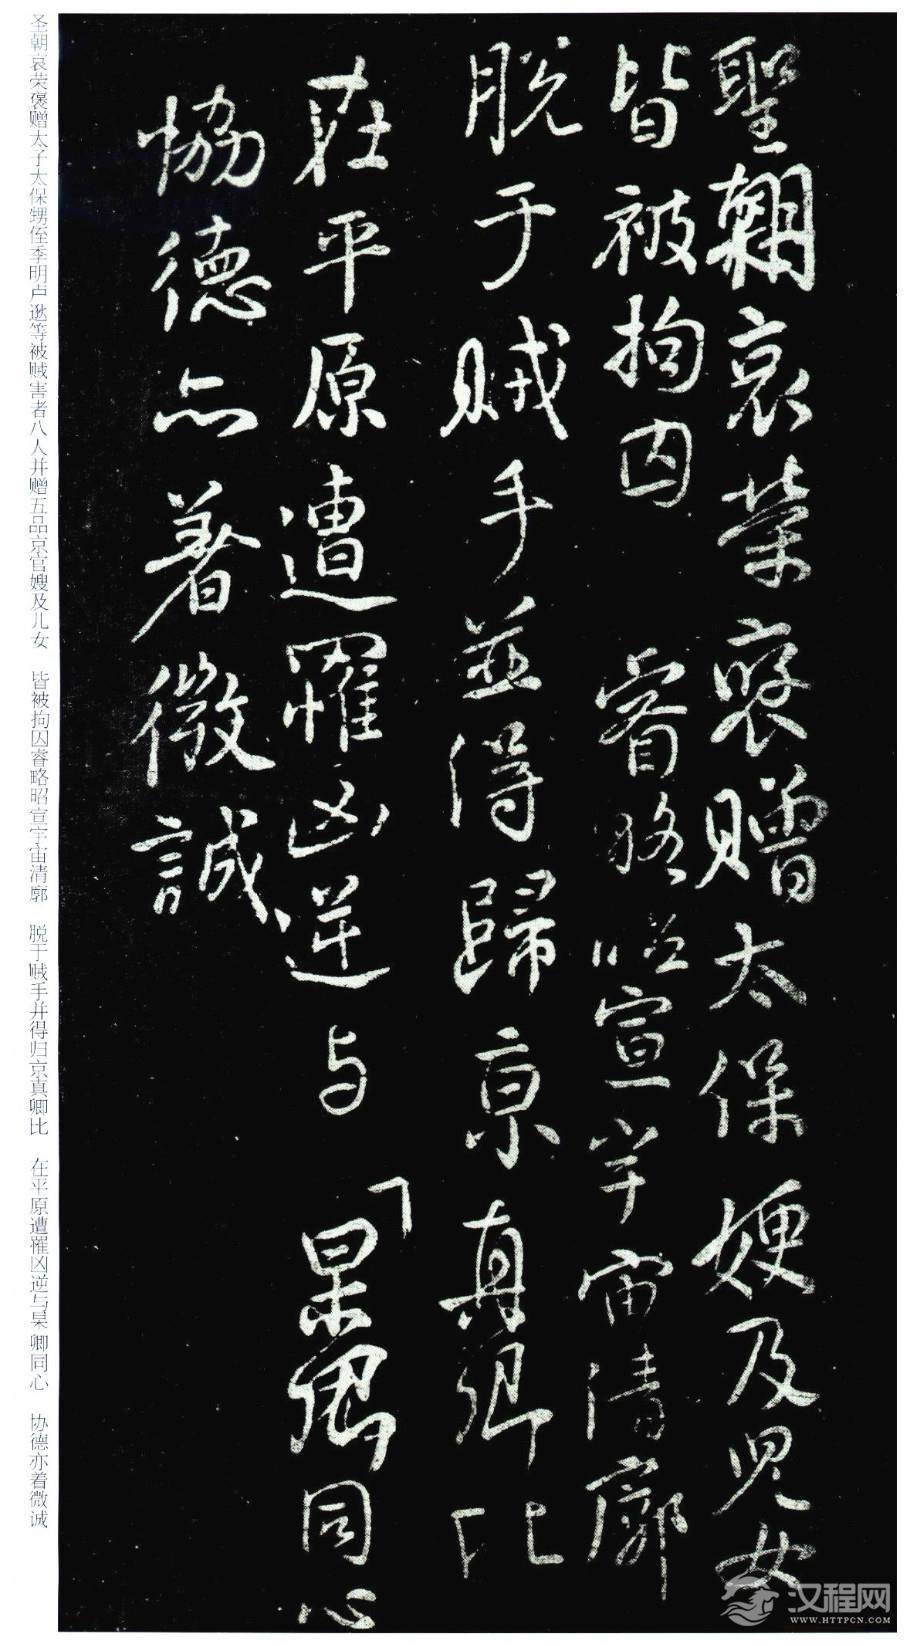 聖朝哀荣褒贈太保嫂及児女
皆被拘囚 睿略昭宣宇宙清廓
脱于贼手並得歸京真卿比
在平原遭罹凶逆与 杲卿同心
恊德亦著微誠
圣朝哀荣褒赠太子太保甥侄季明卢逖等被贼害者八人并赠五品京官嫂及儿女 皆被拘囚睿略昭宣宇宙清廓 脱于贼手并得归京真卿比 在平原遭罹凶逆与杲卿同心 协德亦着微诚
汉程网
WWW.HTTPCN.COM